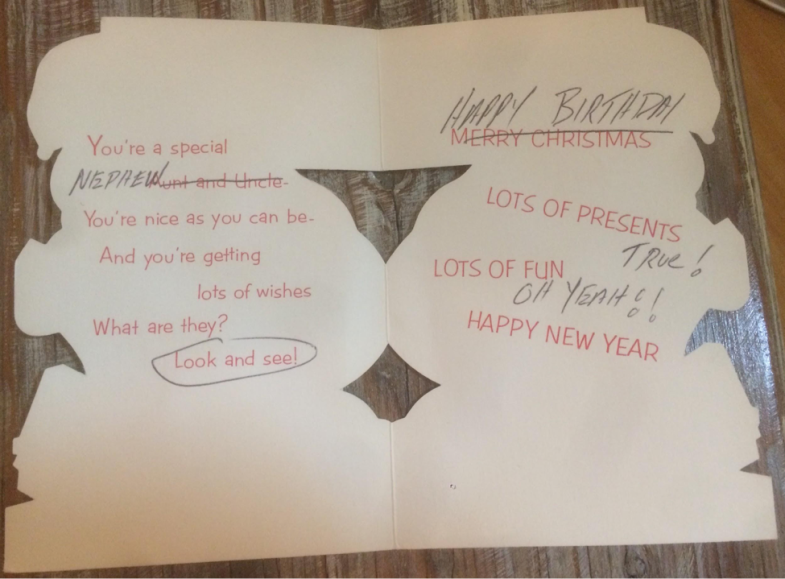 You're a special
NEPHEW Aunt and Uncle-
You're nice as you can be-
And you're getting
lots of wishes
What are they?
Look and see!
HAPPY BIRTHDAY
MERRY CHRISTMAS
LOTS OF PRESENTS
TRUE!
LOTS OF FUN
OH YEAH!!
HAPPY NEW YEAR